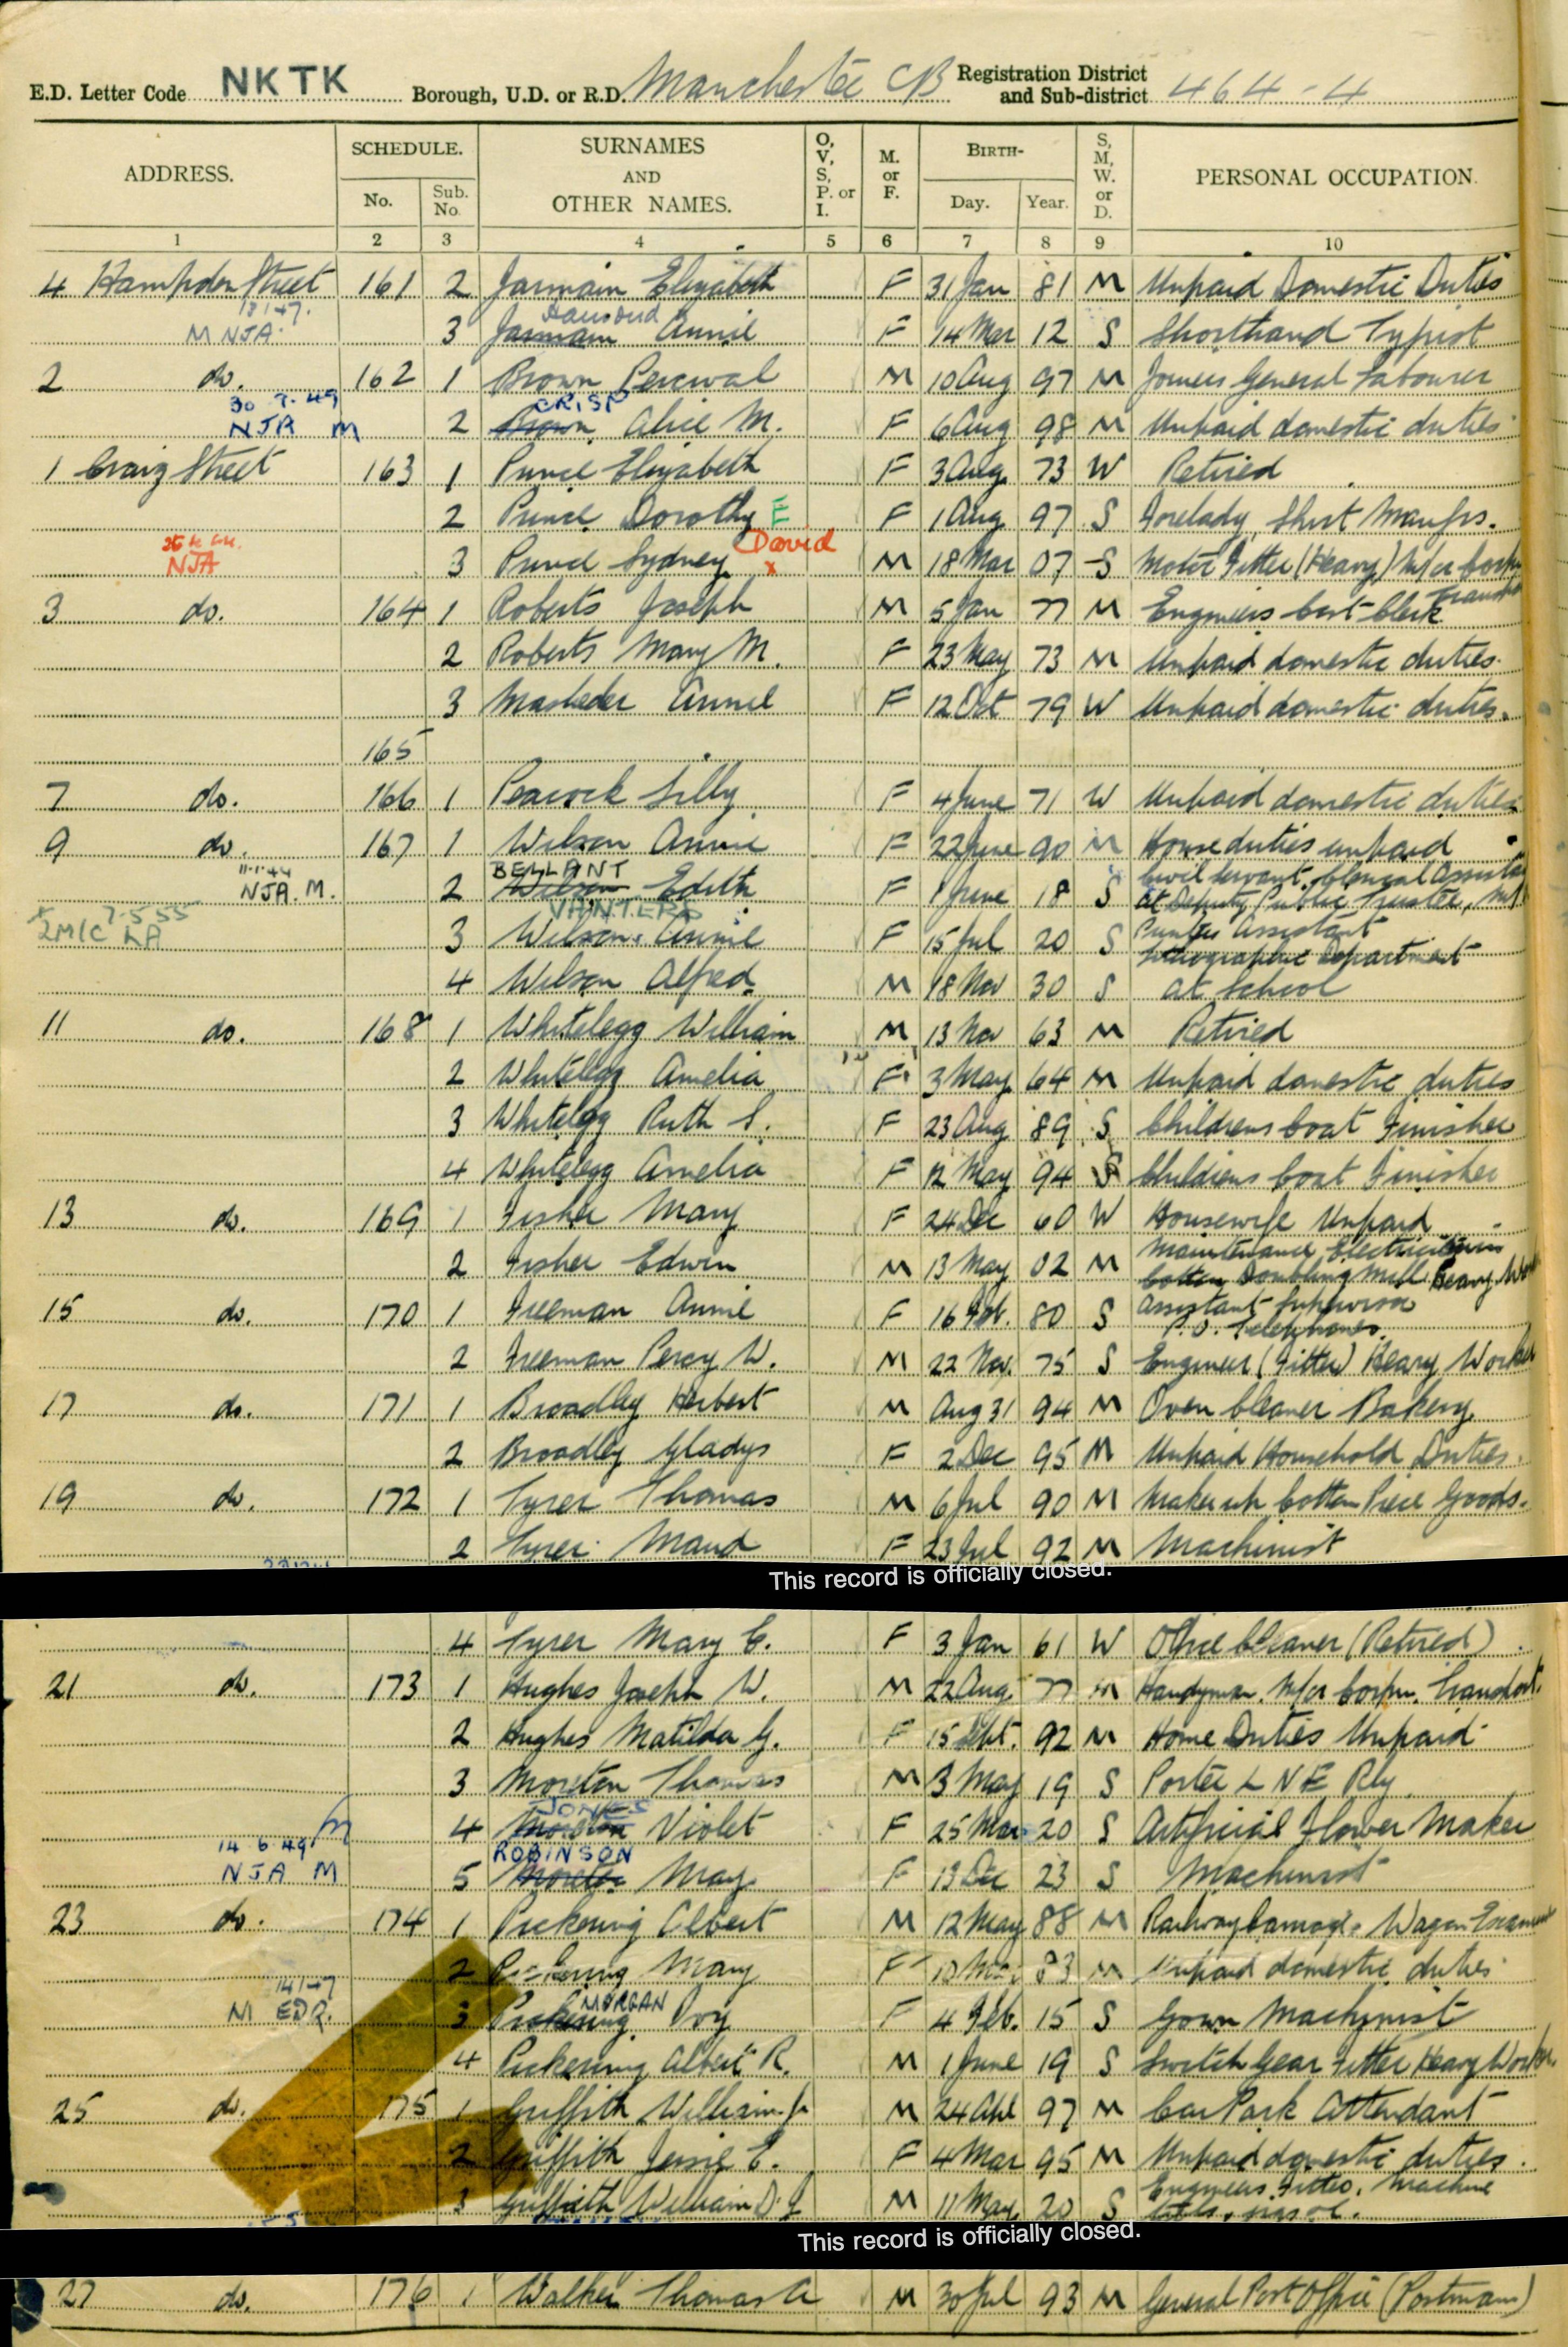 E.D. Letter Code NKTK Borough, U.D. or R.D. Manchester CB Registration District and Sub-district 464-4
ADDRESS. SCHEDULE. No. Sub. No. SURNAMES AND OTHER NAMES. O, V, S, P. or I. M. or F. BIRTH- Day. Year. S, M, W. or D. PERSONAL OCCUPATION.
1 2 3 4 5 6 7 8 9 10
4 Hampden Street 161 2 Jarmain Elizabeth F 31 Jan 81 M Unpaid Domestic Duties
M NJA 3 Jarmain Annie F 14 Mar 12 S Shorthand Typist
2 do. 162 1 Brown Percival M 10 Aug 97 M Joiners General Labourer
30.7.49 CRISP
NJA M 2 Brown Alice M. F 6 Aug 98 M Unpaid domestic duties
1 Craig Street 163 1 Prince Elizabeth F 3 Aug 73 W Retired
2 Prince Dorothy E F 1 Aug 97 S Forelady, Shirt Manfrs.
David
NJA 3 Prince Sydney x M 18 Mar 07 S Motor Fitter (Heavy) M/cr Corpn Transport
3 do. 164 1 Roberts Joseph M 5 Jan 77 M Engineers Cost Clerk
2 Roberts Mary M. F 23 May 73 M Unpaid domestic duties.
3 Masheder Annie F 12 Oct 79 W Unpaid domestic duties.
165
7 do. 166 1 Peacock Lilly F 4 June 71 W Unpaid domestic duties
9 do. 167 1 Wilson Annie F 22 June 90 M House duties unpaid
11.1.44 BELLANT
NJA. M. 2 Wilson Edith F 1 June 18 S Civil Servant. Clerical Assistant at Deputy Public Trustee, M/
7-5-55 VANTERS
2M/C LA 3 Wilson Annie F 15 Jul 20 S Printers Assistant Lithographic Department
4 Wilson Alfred M 18 Nov 30 S at School
11 do. 168 1 Whitelegg William M 13 Nov 63 M Retired
2 Whitelegg Amelia F 3 May 64 M Unpaid domestic duties
3 Whitelegg Ruth S. F 23 Aug 89 S Childrens Coat Finisher
4 Whitelegg Amelia F 12 May 94 S Childrens Coat Finisher
13 do. 169 1 Fisher Mary F 24 Dec 60 W Housewife Unpaid
2 Fisher Edwin M 13 May 02 M Maintenance Electrician Cotton Doubling Mill. Heavy Work
15 do. 170 1 Freeman Annie F 16 Feb. 80 S Assistant Supervisor P.O. Telephones.
2 Freeman Percy W. M 22 Nov. 75 S Engineer (Fitter) Heavy Worker
17 do. 171 1 Broadley Herbert M Aug 31 94 M Oven Cleaner Bakery
2 Broadley Gladys F 2 Dec 95 M Unpaid Household Duties.
19 do. 172 1 Tyrer Thomas M 6 Jul 90 M Maker up Cotton Piece Goods.
2 Tyrer Maud F 23 Jul 92 M Machinist
This record is officially closed.
4 Tyrer Mary E. F 3 Jan 61 W Office Cleaner (Retired)
21 do. 173 1 Hughes Joseph W. M 22 Aug 77 M Handyman. M/cr Corpn. Transport.
2 Hughes Matilda G. F 15 Sept. 92 M Home Duties Unpaid
3 Moreton Thomas M 3 May 19 S Porter L N E Rly
JONES
4 Moreton Violet F 25 Mar 20 S Artificial Flower Maker
14 6 49 ROBINSON
NJA M 5 Moreton May F 13 Dec 23 S Machinist
23 do. 174 1 Pickering Albert M 12 May 88 M Railway Carriage & Wagon
2 Pickering Mary F 83 M Unpaid domestic duties
14 1 47 MORGAN
M EDR. 3 Pickering Ivy F 4 Feb. 15 S Gown Machinist
4 Pickering Albert R. M 1 June 19 S Switch Gear Fitter Heavy Worker
25 do. 175 1 Griffith William J M 24 Apl 97 M Car Park Attendant
2 Griffith Jessie E. F 4 Mar 95 M Unpaid domestic duties.
3 Griffith William D. J M 11 May 20 S Engineers Fitter, Machine
This record is officially closed.
27 do. 176 1 Walker Thomas A M 30 Jul 93 M General Post Office (Postman)